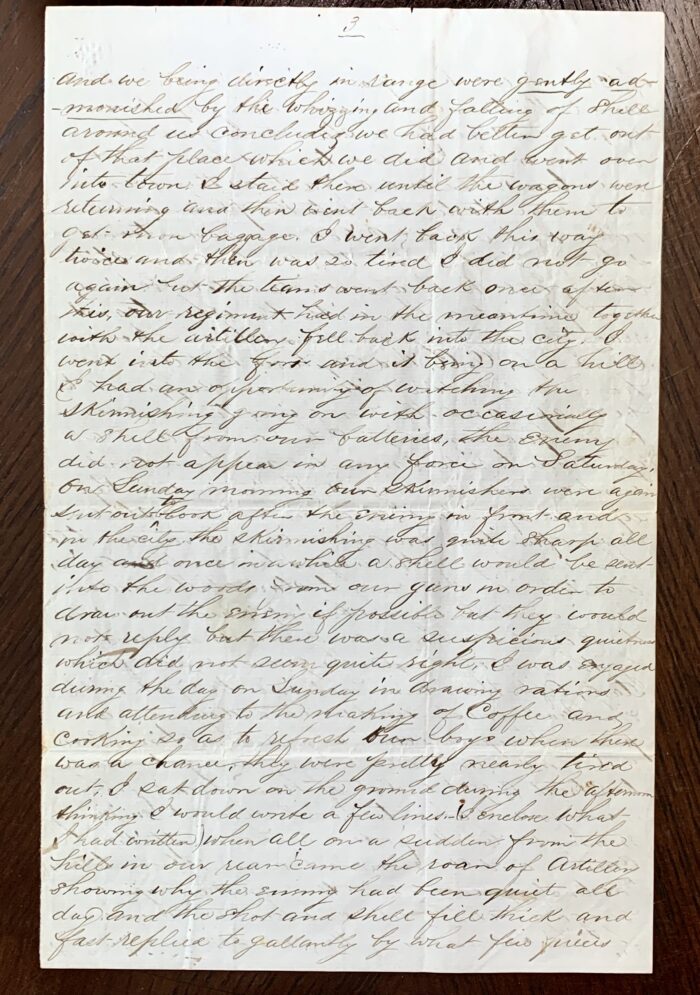 3
and we being directly in range were gently ad-
-monished by the whizzing and falling of Shell
around us concluding we had better get out
of that place which we did and went over
into town. I staid there until the wagons were
returning and then went back with them to
get more baggage. I went back this way
twice and then was so tired I did not go
again but the teams went back once after
this, our regiment had in the meantime together
with the artillery fell back into the city. I
went into the fort and it being on a hill
I had an opportunity of watching the
skirmishing going on with occasionaly
a shell from our batteries, the Enemy
did not appear in any force on Saturday.
On Sunday morning our skirmishers were again
sent out to look after the enemy in front and
in the city, the skirmishing was quite sharp all
day and once in a while a shell would be sent
into the woods from our guns in order to
draw out the enemy if possible but they would
not reply but there was a suspicious quietness
which did not seem quite right, I was engaged
during the day on Sunday in drawing rations
and attending to the making of Coffee and
cooking so as to refresh our boys when there
was a chance, they were pretty nearly tired
out, I sat down on the ground during the afternoon
thinking I would write a few lines (I enclose what
I had written) when all on a sudden from the
hill in our rear came the roar of Artillery
showing why the enemy had been quiet all
day and the shot and shell fell thick and
fast replied to gallantly by what few pieces